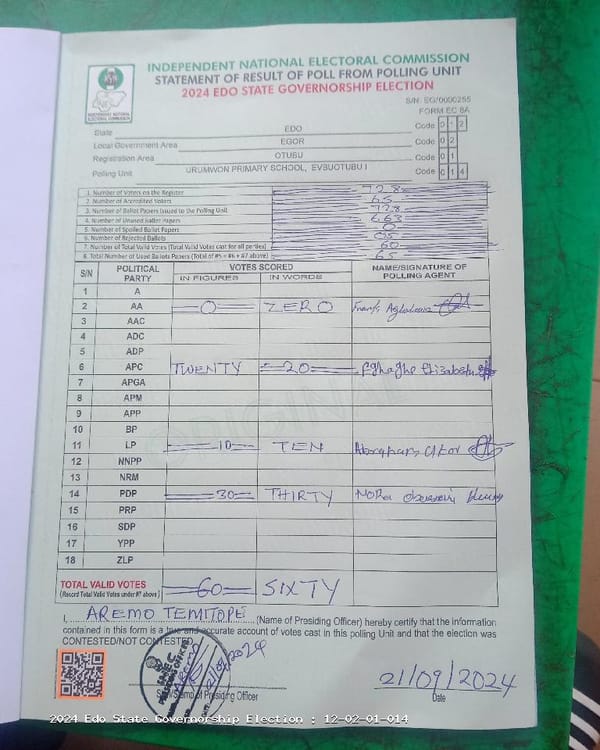 INDEPENDENT NATIONAL ELECTORAL COMMISSION
STATEMENT OF RESULT OF POLL FROM POLLING UNIT
2024 EDO STATE GOVERNORSHIP ELECTION
S/N: EG/0000255
FORM EC 8A
State EDO Code 0 1 2
Local Government Area EGOR Code 0 2
Registration Area OTUBU Code 0 1
Polling Unit URUMWON PRIMARY SCHOOL, EVBUOTUBU I Code 0 1 4
1. Number of Voters on the Register 728
2. Number of Accredited Voters 65
3. Number of Ballot Papers Issued to the Polling Unit 728
4. Number of Unused Ballot Papers 663
5. Number of Spoiled Ballot Papers 0
6. Number of Rejected Ballots 05
7. Number of Total Valid Votes (Total Valid Votes cast for all parties) 60
8. Total Number of Used Ballots Papers (Total of #5 + #6 + #7 above) 65
S/N POLITICAL PARTY VOTES SCORED NAME/SIGNATURE OF POLLING AGENT
IN FIGURES IN WORDS
1 A
2 AA 0 ZERO
3 AAC
4 ADC
5 ADP
6 APC TWENTY 20 Eghaghe Elizabeth
7 APGA
8 APM
9 APP
10 BP
11 LP 10 TEN
12 NNPP
13 NRM
14 PDP 30 THIRTY
15 PRP
16 SDP
17 YPP
18 ZLP
TOTAL VALID VOTES 60 SIXTY
(Record Total Valid Votes under #7 above)
I, AREMO TEMITOPE (Name of Presiding Officer) hereby certify that the information
contained in this form is a true and accurate account of votes cast in this polling Unit and that the election was
CONTESTED/NOT CONTESTED
21/09/2024
21/09/2024
of Presiding Officer Date
2024 Edo State Governorship Election : 12-02-01-014